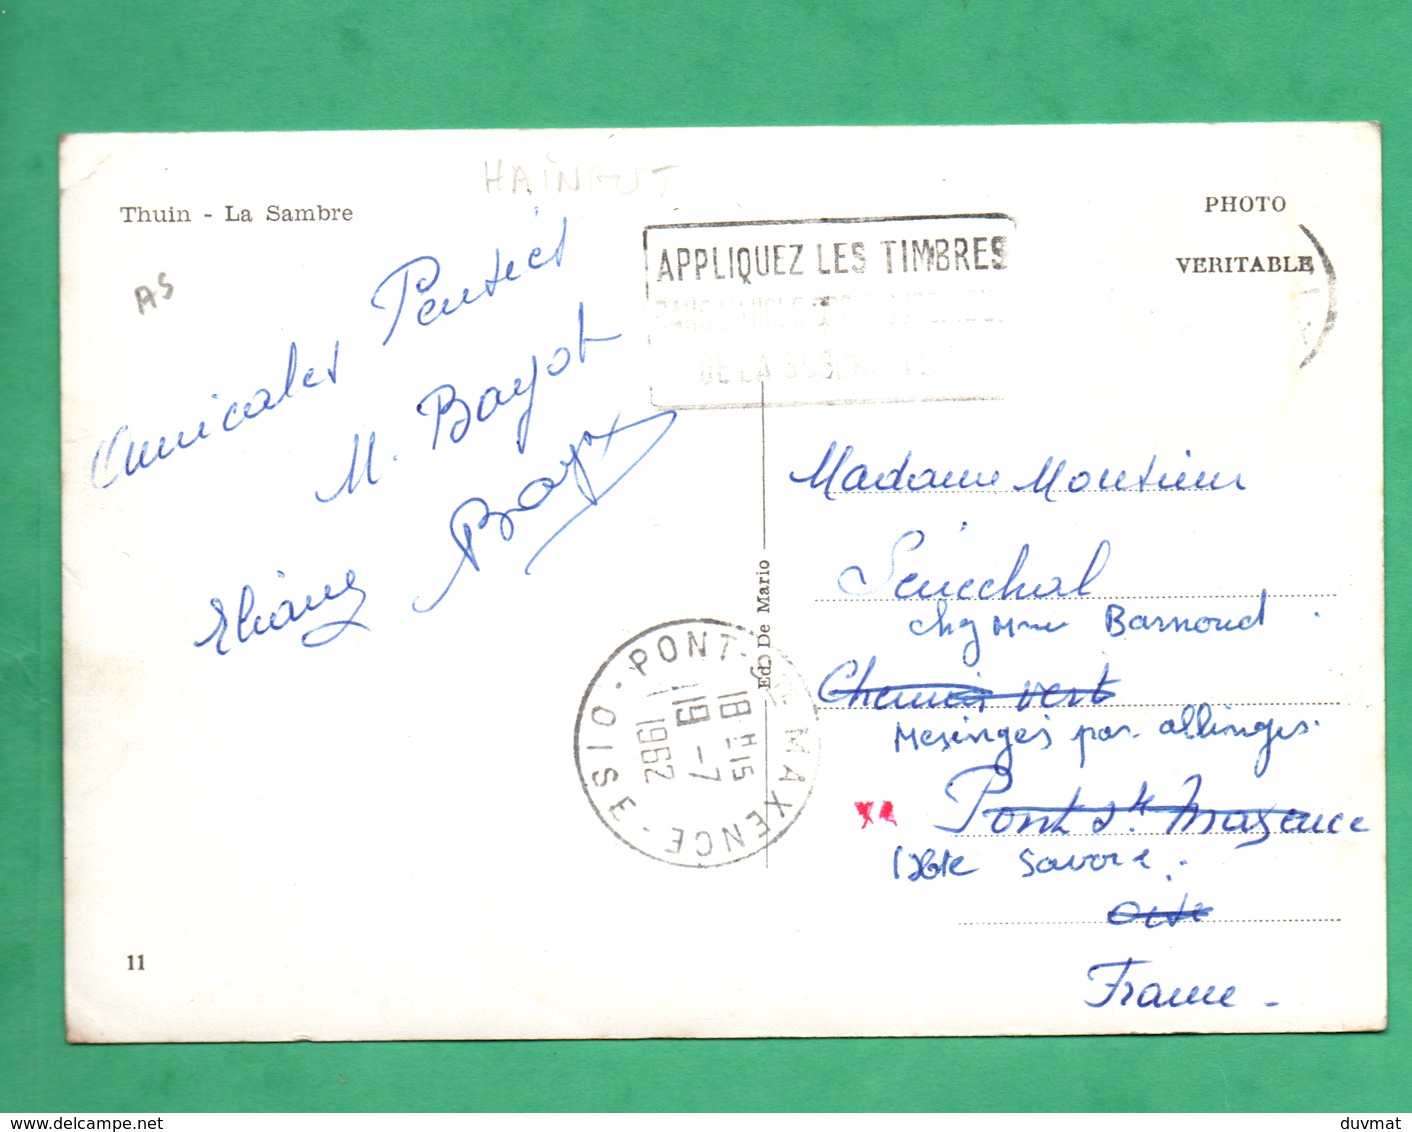 HAINAUT
Thuin - La Sambre
PHOTO
VERITABLE
AS
APPLIQUEZ LES TIMBRES
DE LA
Amicales Pensées
M. Bayot
Eliane Bayot
Madame Monsieur
Sénéchal
chez Mme Barnoud
Chemin vert
Mesinges par allinges.
Pont Ste Maxence
Hte Savoie.
Oise
France -
Ed. De Mario
PONT-STE MAXENCE - OISE
18 H 15
19 - 7
1962
11
www.delcampe.net
duvmat